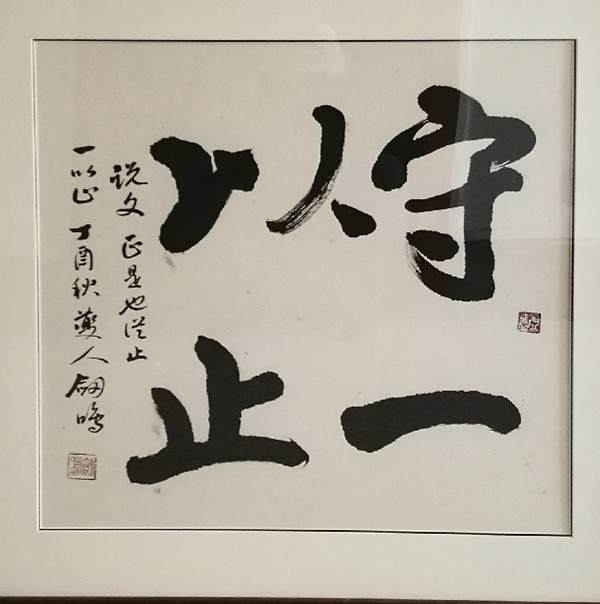 守一
以止
説文 正是也從止
一以止 丁酉秋燕人劍鳴